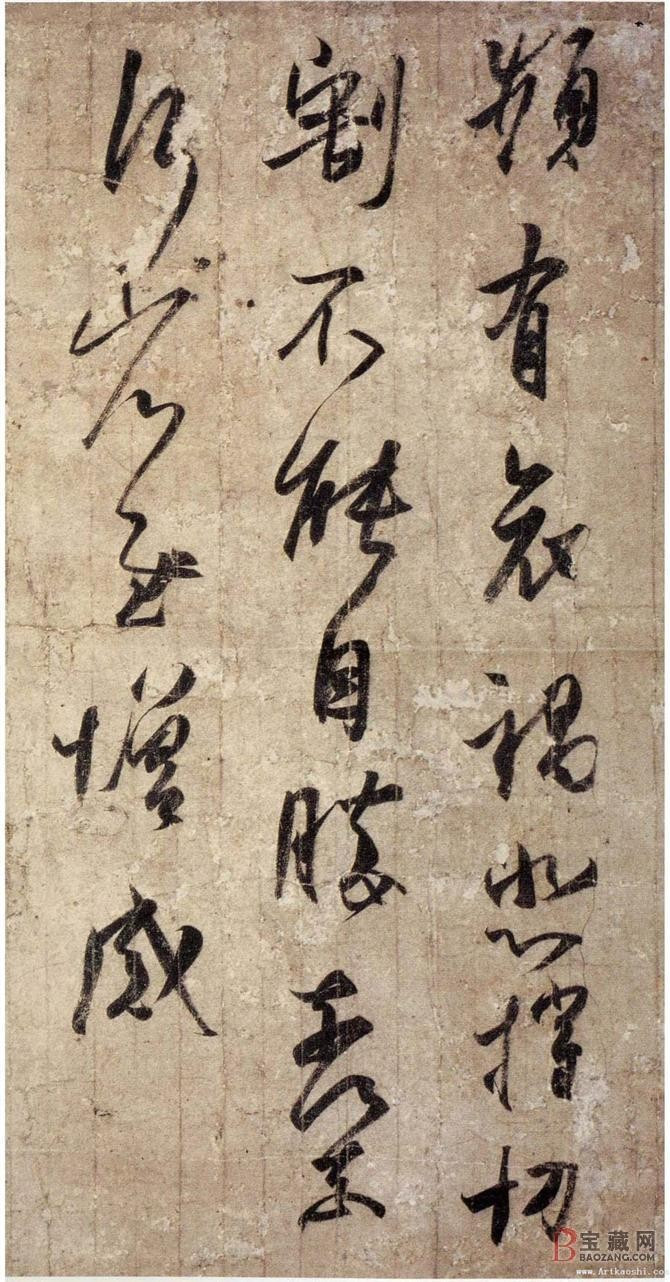 頻有哀禍悲摧切
割不能自勝奈何奈
何省慰增感
B宝藏网
BAOZANG.COM
www.Artkaoshi.co